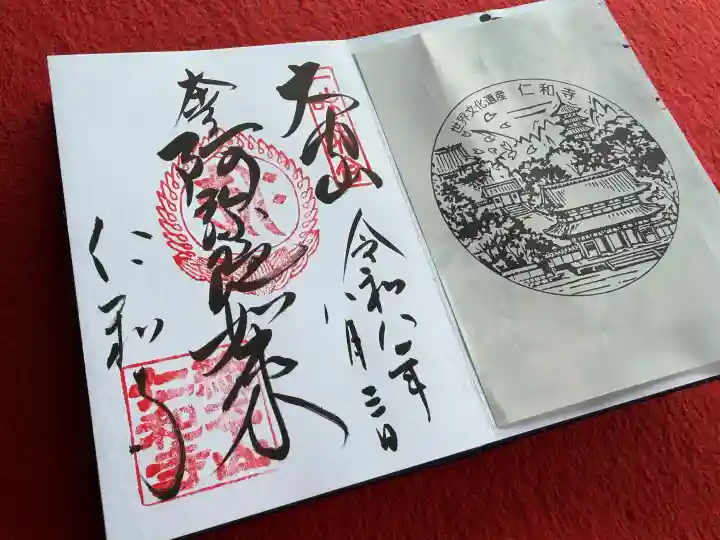 世界文化遺産 仁和寺
大内山
令和八年
八月三日
奉
阿弥陀如来
仁和寺